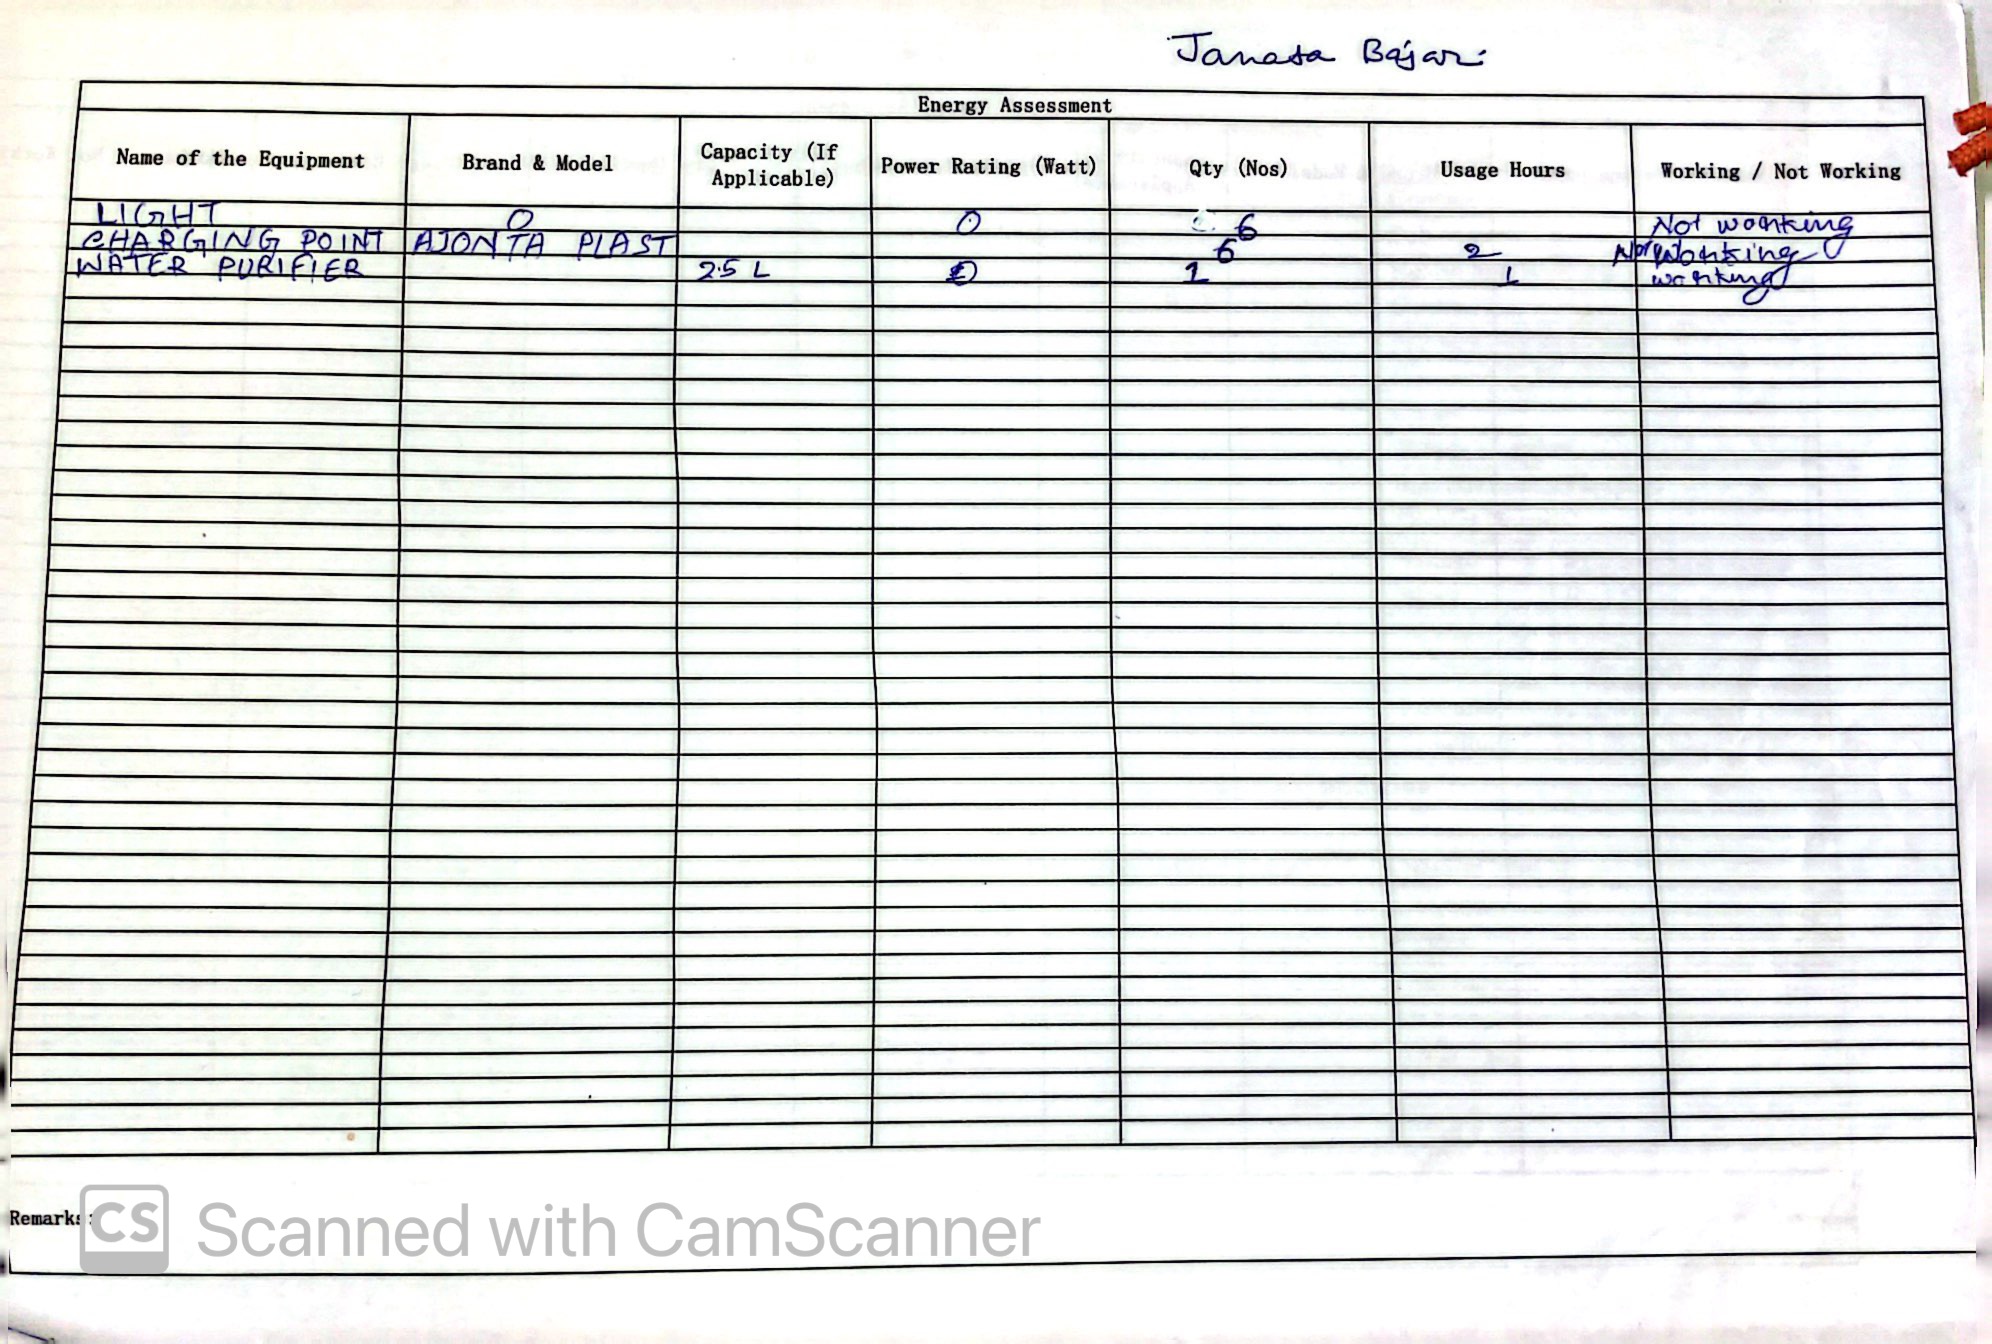 Janata Bajar
Energy Assessment
Name of the Equipment Brand & Model Capacity (If Applicable) Power Rating (Watt) Qty (Nos) Usage Hours Working / Not Working
LIGHT 0 0 6 Not working
CHARGING POINT AJONTA PLAST 6 2 Not Working
WATER PURIFIER 25 L 0 1 1 working
Remarks:
CS Scanned with CamScanner